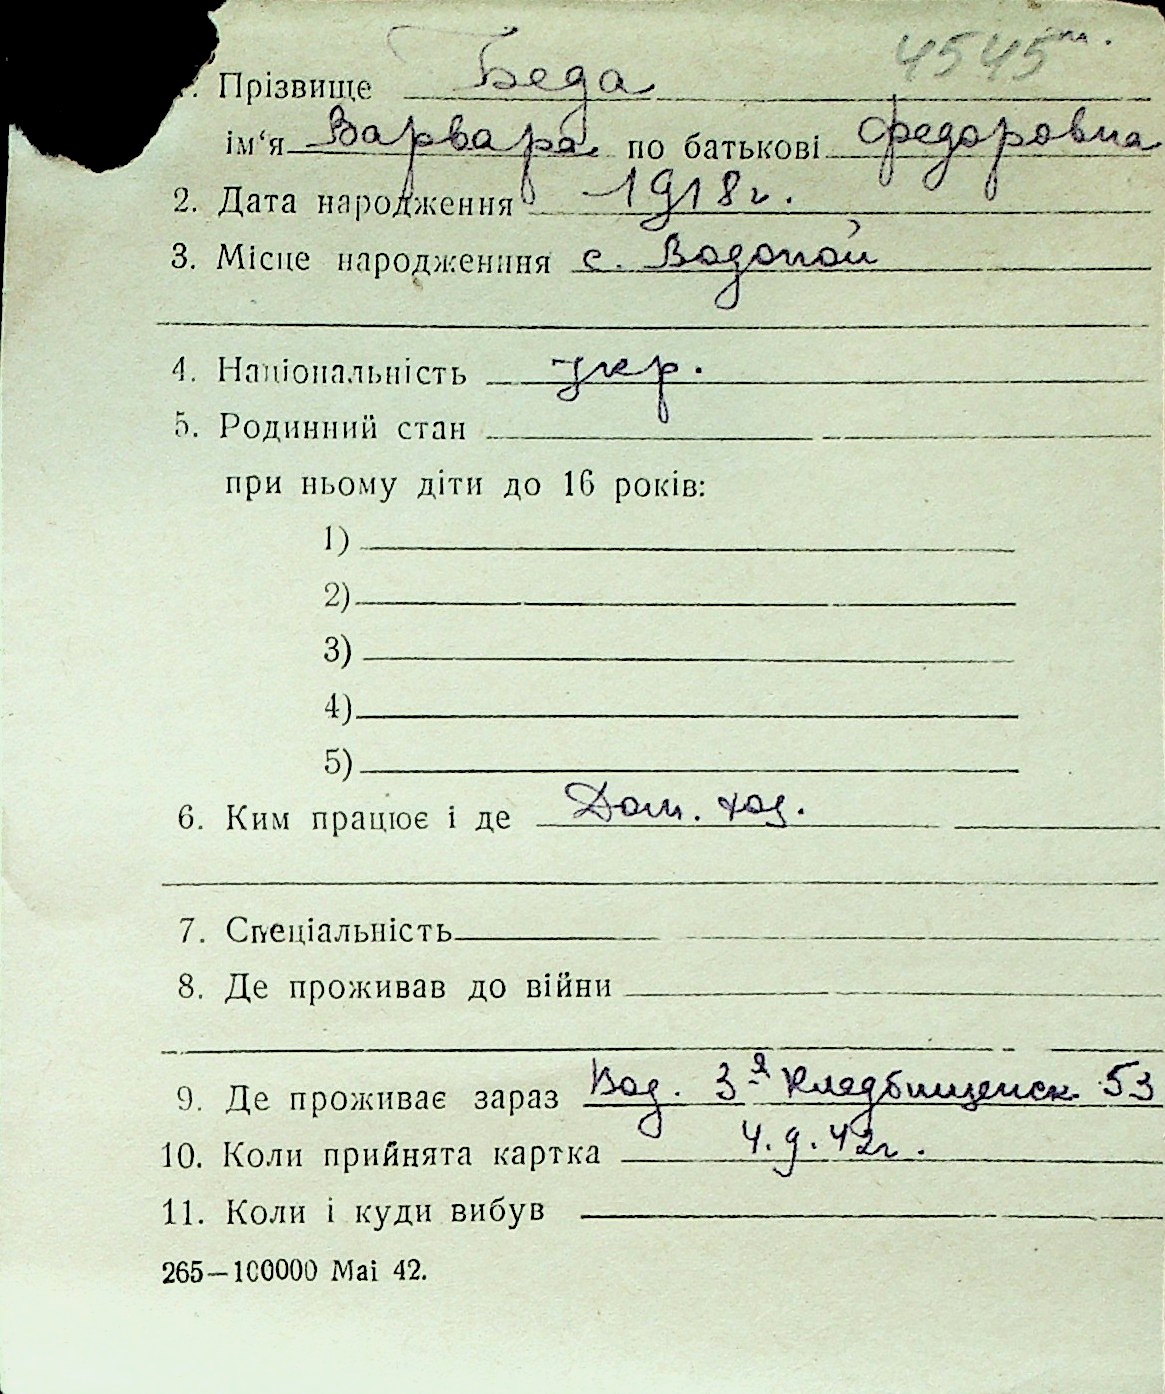 4545
1. Прізвище Беда
ім‘я Варвара по батькові Федоровна
2. Дата народження 1918 г.
3. Місце народженння с. Водопой
4. Національність укр.
5. Родинний стан
при ньому діти до 16 років:
1)
2)
3)
4)
5)
6. Ким працює і де Дом. хоз.
7. Спеціальність
8. Де проживав до війни
9. Де проживає зараз Вод. 3-я Кладбищенск. 53
10. Коли прийнята картка 4.9.42 г.
11. Коли і куди вибув
265—100000 Mai 42.